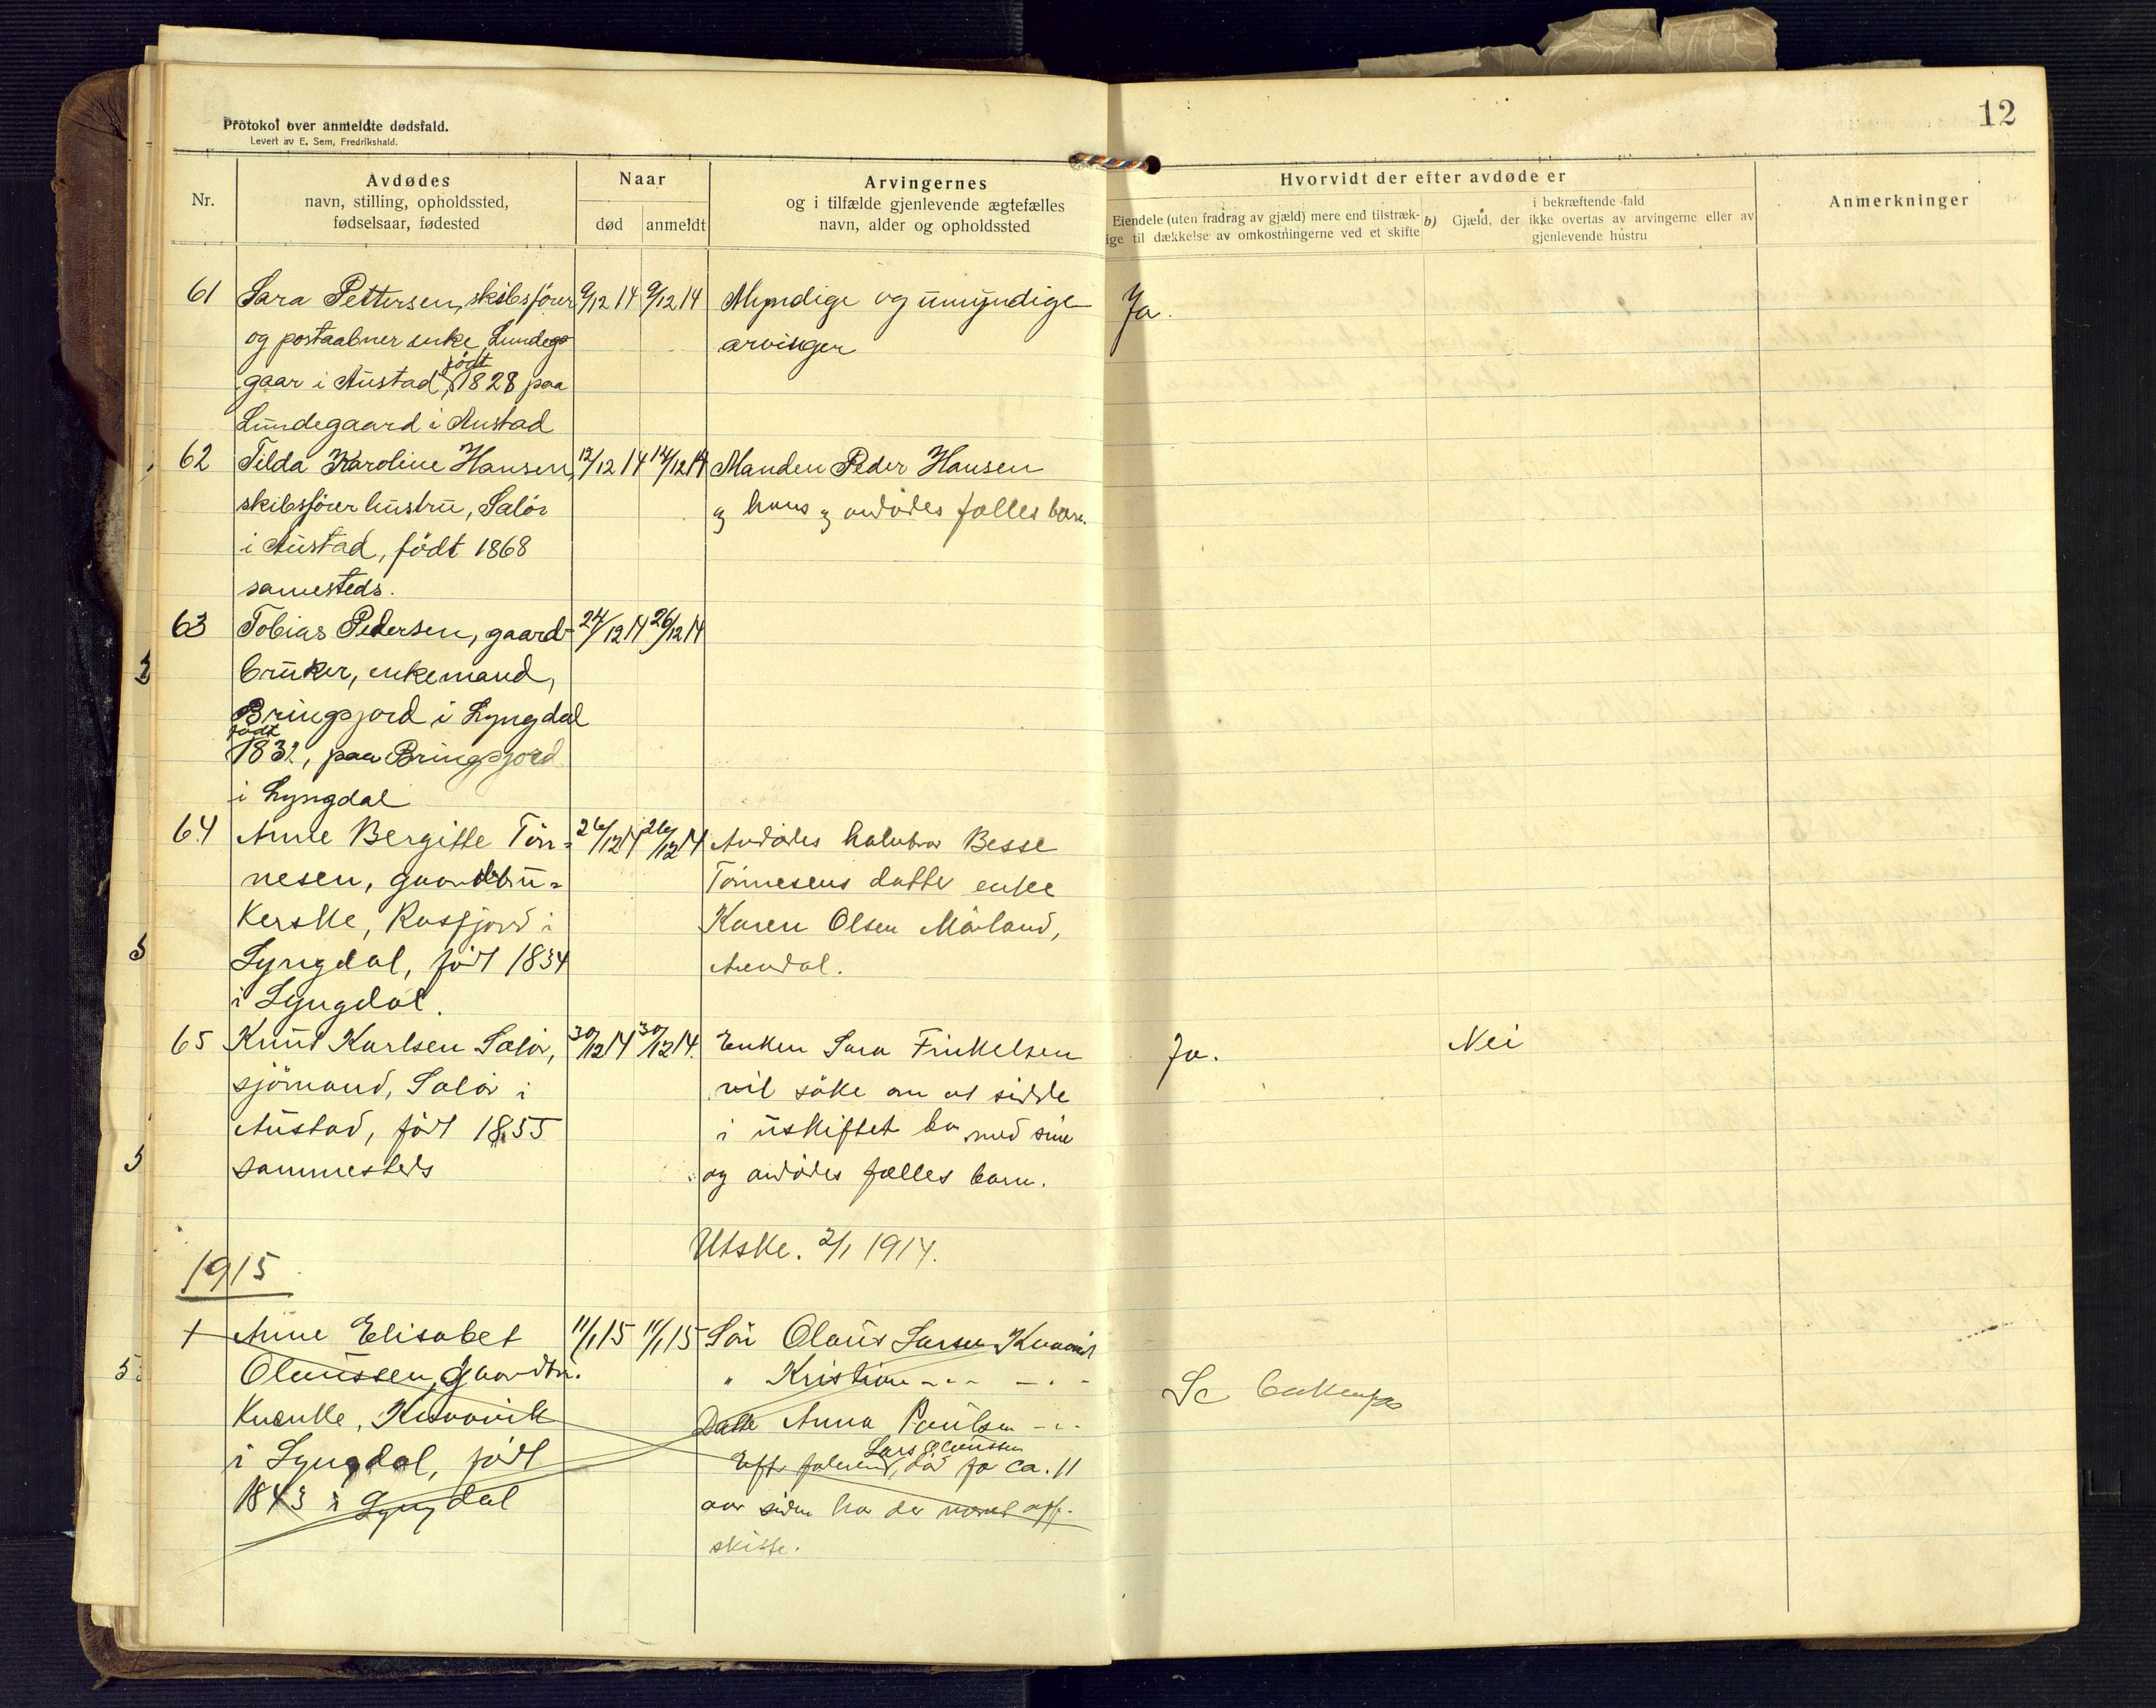 Protokol over anmeldte dødsfald.
Levert av E. Sem, Fredrikshald.
12
Nr.
Avdødes
navn, stilling, opholdssted,
fødselsaar, fødested
Naar
død
anmeldt
Arvingernes
og i tilfælde gjenlevende ægtefælles
navn, alder og opholdssted
Hvorvidt der efter avdøde er
Eiendele (uten fradrag av gjæld) mere end tilstræk-
ige til dækkelse av omkostningerne ved et skifte
b) Gjæld, der
i bekræftende fald
ikke overtas av arvingerne eller av
gjenlevende hustru
Anmerkninger
61 Sara Pettersen, skibsfører 9/12 14 9/12 14 Myndige og umyndige Ja.
og postaabner enke, Lundeg- arvinger
født
gaar i Austad, 1828 paa
Lundegaard i Austad
62 Tilda Karoline Hansen, 12/12 14 14/12 14 Manden Peder Hansen
skibsfører hustru, Salør og hans og avdødes fælles barn.
i Austad, født 1868
samesteds.
63 Tobias Pedersen, gaard- 24/12 14 26/12 14
bruker, enkemand,
Bringsjord i Lyngdal
født
183, paa Bringsjord
i Lyngdal
64 Anne Bergitte Tön= 26/12 14 26/12 14 Avdødes halvbror Besse
nesen, gaardbru= Tönnesens datter enke
kerske, Rosfjord i Karen Olsen Mörland,
Lyngdal, født 1834 Arendal.
i Lyngdal.
65 Knut Karlsen Salör, 30/12 14 30/12 14. Enken Sara Finkelsen Ja. Nei
sjömand, Salör i vil söke om at sidde
Austad, født 1855 i uskiftet bo med sine
sammesteds og avdödes fælles barn.
Utskr. 2/1 1914.
1915
1 Anne Elisabet 11/1 15 11/1 15 Sön Olaus Larsen Kvavik
Olaussen, gaardbr. " Kristian - - - - -
Kvavik Datter Anna Paulsen - -
Lars Olaussen
i Lyngdal, født Efter død for ca. 11
1843 i Lyngdal aar siden har der været off.
skifte.
Se